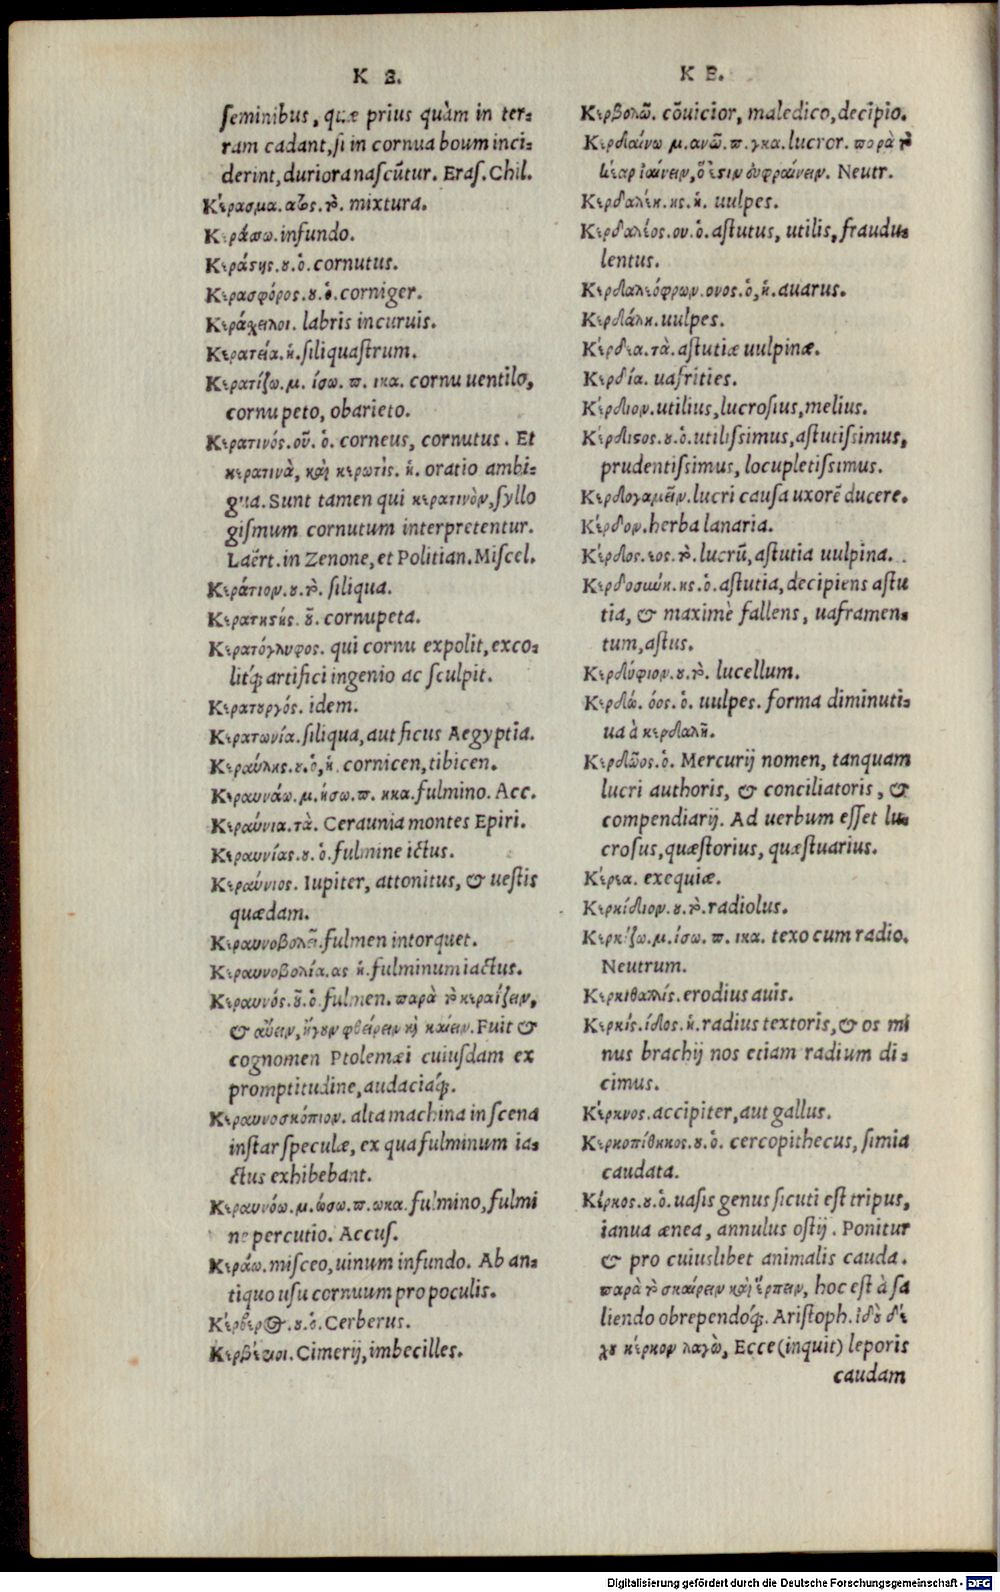 K E.
seminibus, quæ prius quàm in ter-
ram cadant, si in cornua boum inci-
derint, duriora nascūtur. Eras. Chil.
Κέρασμα. ατος. τὸ. mixtura.
Κεράσω. infundo.
Κεράστης. ου. ὁ. cornutus.
Κερασφόρος. ου. ὁ. corniger.
Κεράχειλοι. labris incuruis.
Κερατεία. ἡ. siliquastrum.
Κερατίζω. μ. ίσω. π. ικα. cornu uentilo,
cornu peto, obarieto.
Κερατινός. οῦ. ὁ. corneus, cornutus. Et
κερατινὰ, καὶ κερωτὶς. ἡ. oratio ambi-
gua. Sunt tamen qui κερατινὸν, syllo
gismum cornutum interpretentur.
Laërt. in Zenone, et Politian. Miscel.
Κεράτιον. ου. τὸ. siliqua.
Κερατηστής. οῦ. cornupeta.
Κερατόγλυφος. qui cornu expolit, exco-
litq́; artifici ingenio ac sculpit.
Κερατουργός. idem.
Κερατωνία. siliqua, aut ficus Aegyptia.
Κεραύλης. ου. ὁ, ἡ. cornicen, tibicen.
Κεραυνάω. μ. ήσω. π. ηκα. fulmino. Acc.
Κεραύνια. τὰ. Ceraunia montes Epiri.
Κεραυνίας. ου. ὁ. fulmine ictus.
Κεραύνιος. Iupiter, attonitus, & uestis
quædam.
Κεραυνοβολεῖ. fulmen intorquet.
Κεραυνοβολία. ας ἡ. fulminum iactus.
Κεραυνός. οῦ. ὁ. fulmen. παρὰ τὸ κεραΐζειν,
& αὔειν, ἤγουν φθείρειν καὶ καίειν. Fuit &
cognomen Ptolemæi cuiusdam ex
promptitudine, audaciaq́;.
Κεραυνοσκόπιον. alta machina in scena
instar speculæ, ex qua fulminum ia-
ctus exhibebant.
Κεραυνόω. μ. ώσω. π. ωκα. fulmino, fulmi
ne percutio. Accus.
Κεράω. misceo, uinum infundo. Ab an-
tiquo usu cornuum pro poculis.
Κέρβερος. ου. ὁ. Cerberus.
Κερβέριοι. Cimerij, imbecilles.
K E.
Κερβολῶ. cōuicior, maledico, decipio.
Κερδαίνω μ. ανῶ. π. γκα. lucror. παρὰ τὸ
κέαρ ἰαίνειν, ὅ ἐστιν εὐφραίνειν. Neutr.
Κερδαλέη. ης. ἡ. uulpes.
Κερδαλέος. ου. ὁ. astutus, utilis, fraudu-
lentus.
Κερδαλεόφρων. ονος. ὁ, ἡ. auarus.
Κερδάλη. uulpes.
Κέρδεα. τὰ. astutiæ uulpinæ.
Κερδία. uafrities.
Κέρδιον. utilius, lucrosius, melius.
Κέρδιστος. ου. ὁ. utilissimus, astutissimus,
prudentissimus, locupletissimus.
Κερδογαμεῖν. lucri causa uxorē ducere.
Κέρδον. herba lanaria.
Κέρδος. εος. τὸ. lucrū, astutia uulpina.
Κερδοσύνη. ης. ὁ. astutia, decipiens astu
tia, & maximè fallens, uaframen-
tum, astus.
Κερδύφιον. ου. τὸ. lucellum.
Κερδώ. όος. ὁ. uulpes. forma diminuti-
ua à κερδαλῆ.
Κερδῶος. ὁ. Mercurij nomen, tanquam
lucri authoris, & conciliatoris, &
compendiarij. Ad uerbum esset lu-
crosus, quæstorius, quæstuarius.
Κέρεα. exequiæ.
Κερκίδιον. ου. τὸ. radiolus.
Κερκίζω. μ. ίσω. π. ικα. texo cum radio.
Neutrum.
Κερκιθαλίς. erodius auis.
Κερκίς. ίδος. ἡ. radius textoris, & os mi
nus brachij nos etiam radium di-
cimus.
Κέρκνος. accipiter, aut gallus.
Κερκοπίθηκος. ου. ὁ. cercopithecus, simia
caudata.
Κέρκος. ου. ὁ. uasis genus sicuti est tripus,
ianua ænea, annulus ostij. Ponitur
& pro cuiuslibet animalis cauda.
παρὰ τὸ σκαίρειν καὶ ἕρπειν, hoc est à sa
liendo obrependoq́;. Aristoph. ἰδοὺ δέ
χου κέρκον λαγὼ, Ecce (inquit) leporis
caudam
Digitalisierung gefördert durch die Deutsche Forschungsgemeinschaft - DFG